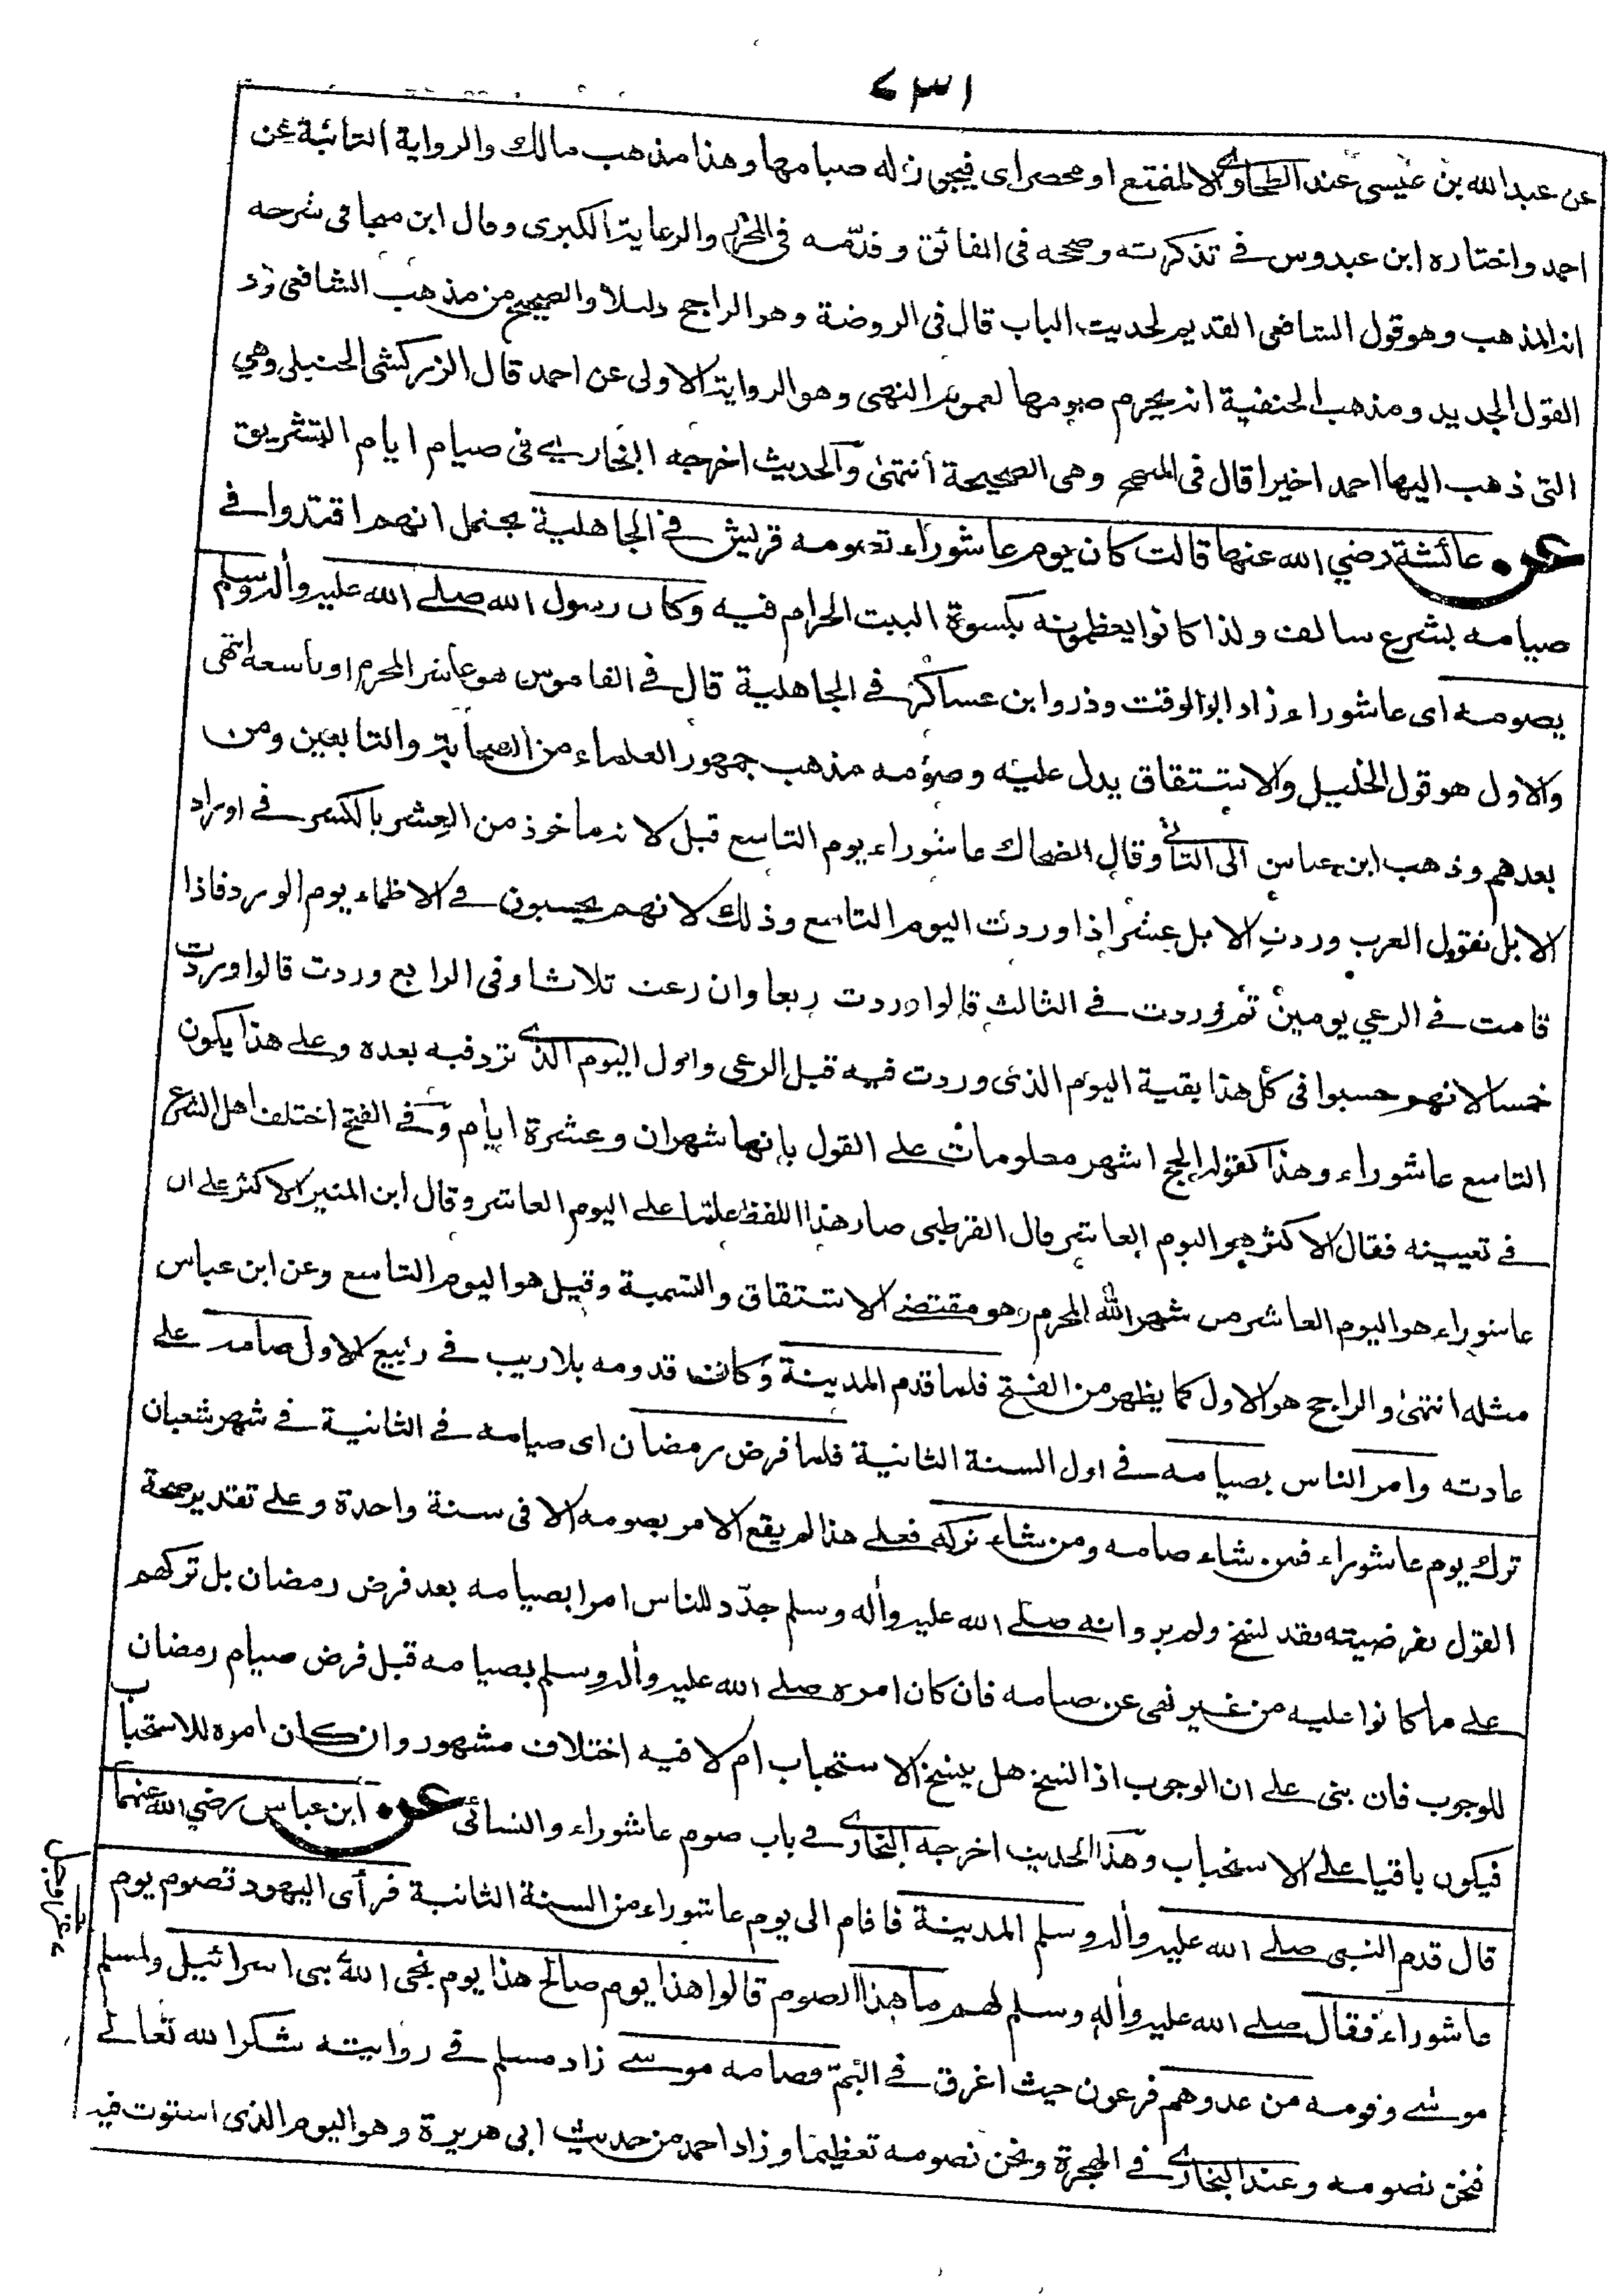 ٤٣١
عن عبدالله بن عيسى عند الطحاوى الا لمتمتع او محصراى فيجوز له صيامها وهذا مذهب مالك والرواية الثانية عن
احمد واختاره ابن عبدوس فى تذكرته وصححه فى الفائق وقدّمه فى المحرر والرعاية الكبرى وقال ابن منجا فى شرحه
انه المذهب وهو قول الشافعى القديم لحديث الباب قال فى الروضة وهو الراجح دليلا والصحيح من مذهب الشافعى وهو
القول الجديد ومذهب الحنفية انه يحرم صومها لعموم النهى وهو الرواية الاولى عن احمد قال الزركشى الحنبلى وهي
التى ذهب اليها احمد اخيرا قال فى المبهج وهى الصحيحة انتهى والحديث اخرجه البخارى فى صيام ايام التشريق
عن عائشة رضي الله عنها قالت كان يوم عاشوراء تصومه قريش فى الجاهلية يحتمل انهم اقتدوا فى
صيامه بشرع سالف ولذا كانوا يعظمونه بكسوة البيت الحرام فيه وكان رسول الله صلى الله عليه وأله وسلم
يصومه اى عاشوراء زاد ابوالوقت وذر وابن عساكر فى الجاهلية قال فى القاموس هو عاشر المحرم او تاسعه انتهى
والاول هو قول الخليل والاشتقاق يدل عليه وصومه مذهب جمهور العلماء من الصحابة والتابعين ومن
بعدهم وذهب ابن عباس الى الثانى وقال الضحاك عاشوراء يوم التاسع قيل لانه ماخوذ من العِشر بالكسر فى اوراد
الابل تقول العرب وردت الابل عشرا اذا وردت اليوم التاسع وذلك لانهم يحسبون فى الاظماء يوم الورد فاذا
قامت فى الرعي يومين ثم وردت فى الثالث قالوا وردت ربعا وان رعت ثلاثا وفى الرابع وردت قالوا وردت
خمسا لانهم حسبوا فى كل هذا بقية اليوم الذى وردت فيه قبل الرعى واول اليوم الذى ترد فيه بعده وعلى هذا يكون
التاسع عاشوراء وهذا كقوله الحج اشهر معلومات على القول بانها شهران وعشرة ايام وَفى الفتح اختلف اهل الشرع
فى تعيينه فقال الاكثر هو اليوم العاشر قال القرطبى صار هذا اللفظ علما على اليوم العاشر وقال ابن المنير الاكثر على ان
عاشوراء هو اليوم العاشر من شهر الله المحرم وهو مقتضى الاشتقاق والتسمية وقيل هو اليوم التاسع وعن ابن عباس
مثله انتهى والراجح هو الاول كما يظهر من الفتح فلما قدم المدينة وَكانت قدومه بلاريب فى ربيع الاول صامه على
عادته وامر الناس بصيامه فى اول السنة الثانية فلما فرض رمضان اى صيامه فى الثانية فى شهر شعبان
ترك يوم عاشوراء فمن شاء صامه ومن شاء تركه فعلى هذا لم يقع الامر بصومه الا فى سنة واحدة وعلى تقدير صحة
القول بفرضيته فقد نسخ ولم يرو انه صلى الله عليه وأله وسلم جدّد للناس امرا بصيامه بعد فرض رمضان بل تركهم
على ما كانوا عليه من غير نهى عن صيامه فان كان امره صلى الله عليه وأله وسلم بصيامه قبل فرض صيام رمضان
للوجوب فان بنى على ان الوجوب اذا نسخ هل ينسخ الاستحباب ام لا فيه اختلاف مشهور وان كان امره للاستحباب
فيكون باقيا على الاستحباب وهَذا الحديث اخرجه البخارى فى باب صوم عاشوراء والنسائى عن ابن عباس رضي الله عنهما
قال قدم النبى صلى الله عليه وأله وسلم المدينة فاقام الى يوم عاشوراء من السنة الثانية فرأى اليهود تصوم يوم
عاشوراء فقال صلى الله عليه وأله وسلم لهم ما هذا الصوم قالوا هذا يوم صالح هذا يوم نجى الله بنى اسرائيل ولمسلم
موسى وقومه من عدوهم فرعون حيث اغرق فى اليَمّ فصامه موسى زاد مسلم فى روايته شكرا لله تعالى
فنحن نصومه وعند البخارى فى الهجرة ونحن نصومه تعظيما وزاد احمد من حديث ابى هريرة وهو اليوم الذى استوت فيه